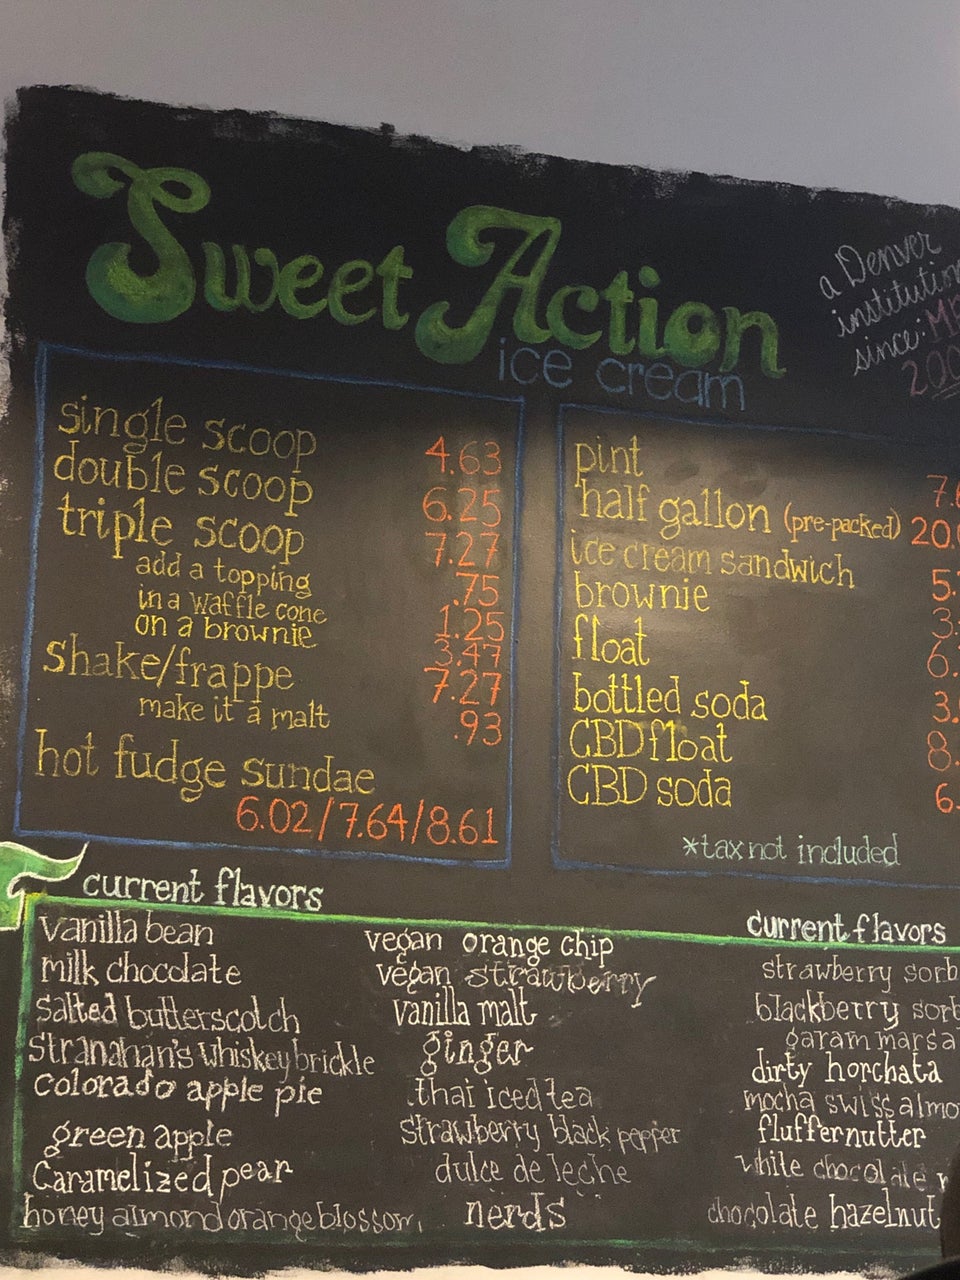 Sweet Action
ice cream
a Denver
institution
since:
single scoop 4.63
double scoop 6.25
triple scoop 7.27
add a topping .75
in a waffle cone 1.25
on a brownie 3.47
shake/frappe 7.27
make it a malt .93
hot fudge sundae
6.02/7.64/8.61
pint
half gallon (pre-packed)
ice cream sandwich
brownie
float
bottled soda
CBD float
CBD soda
*tax not included
current flavors
vanilla bean
milk chocolate
salted butterscotch
stranahan's whiskey brickle
colorado apple pie
green apple
caramelized pear
honey almond orange blossom
vegan orange chip
vegan strawberry
vanilla malt
ginger
thai iced tea
strawberry black pepper
dulce de leche
nerds
current flavors
strawberry
blackberry
garam
dirty horchata
mocha swiss
fluffernutter
white chocolate
chocolate hazelnut